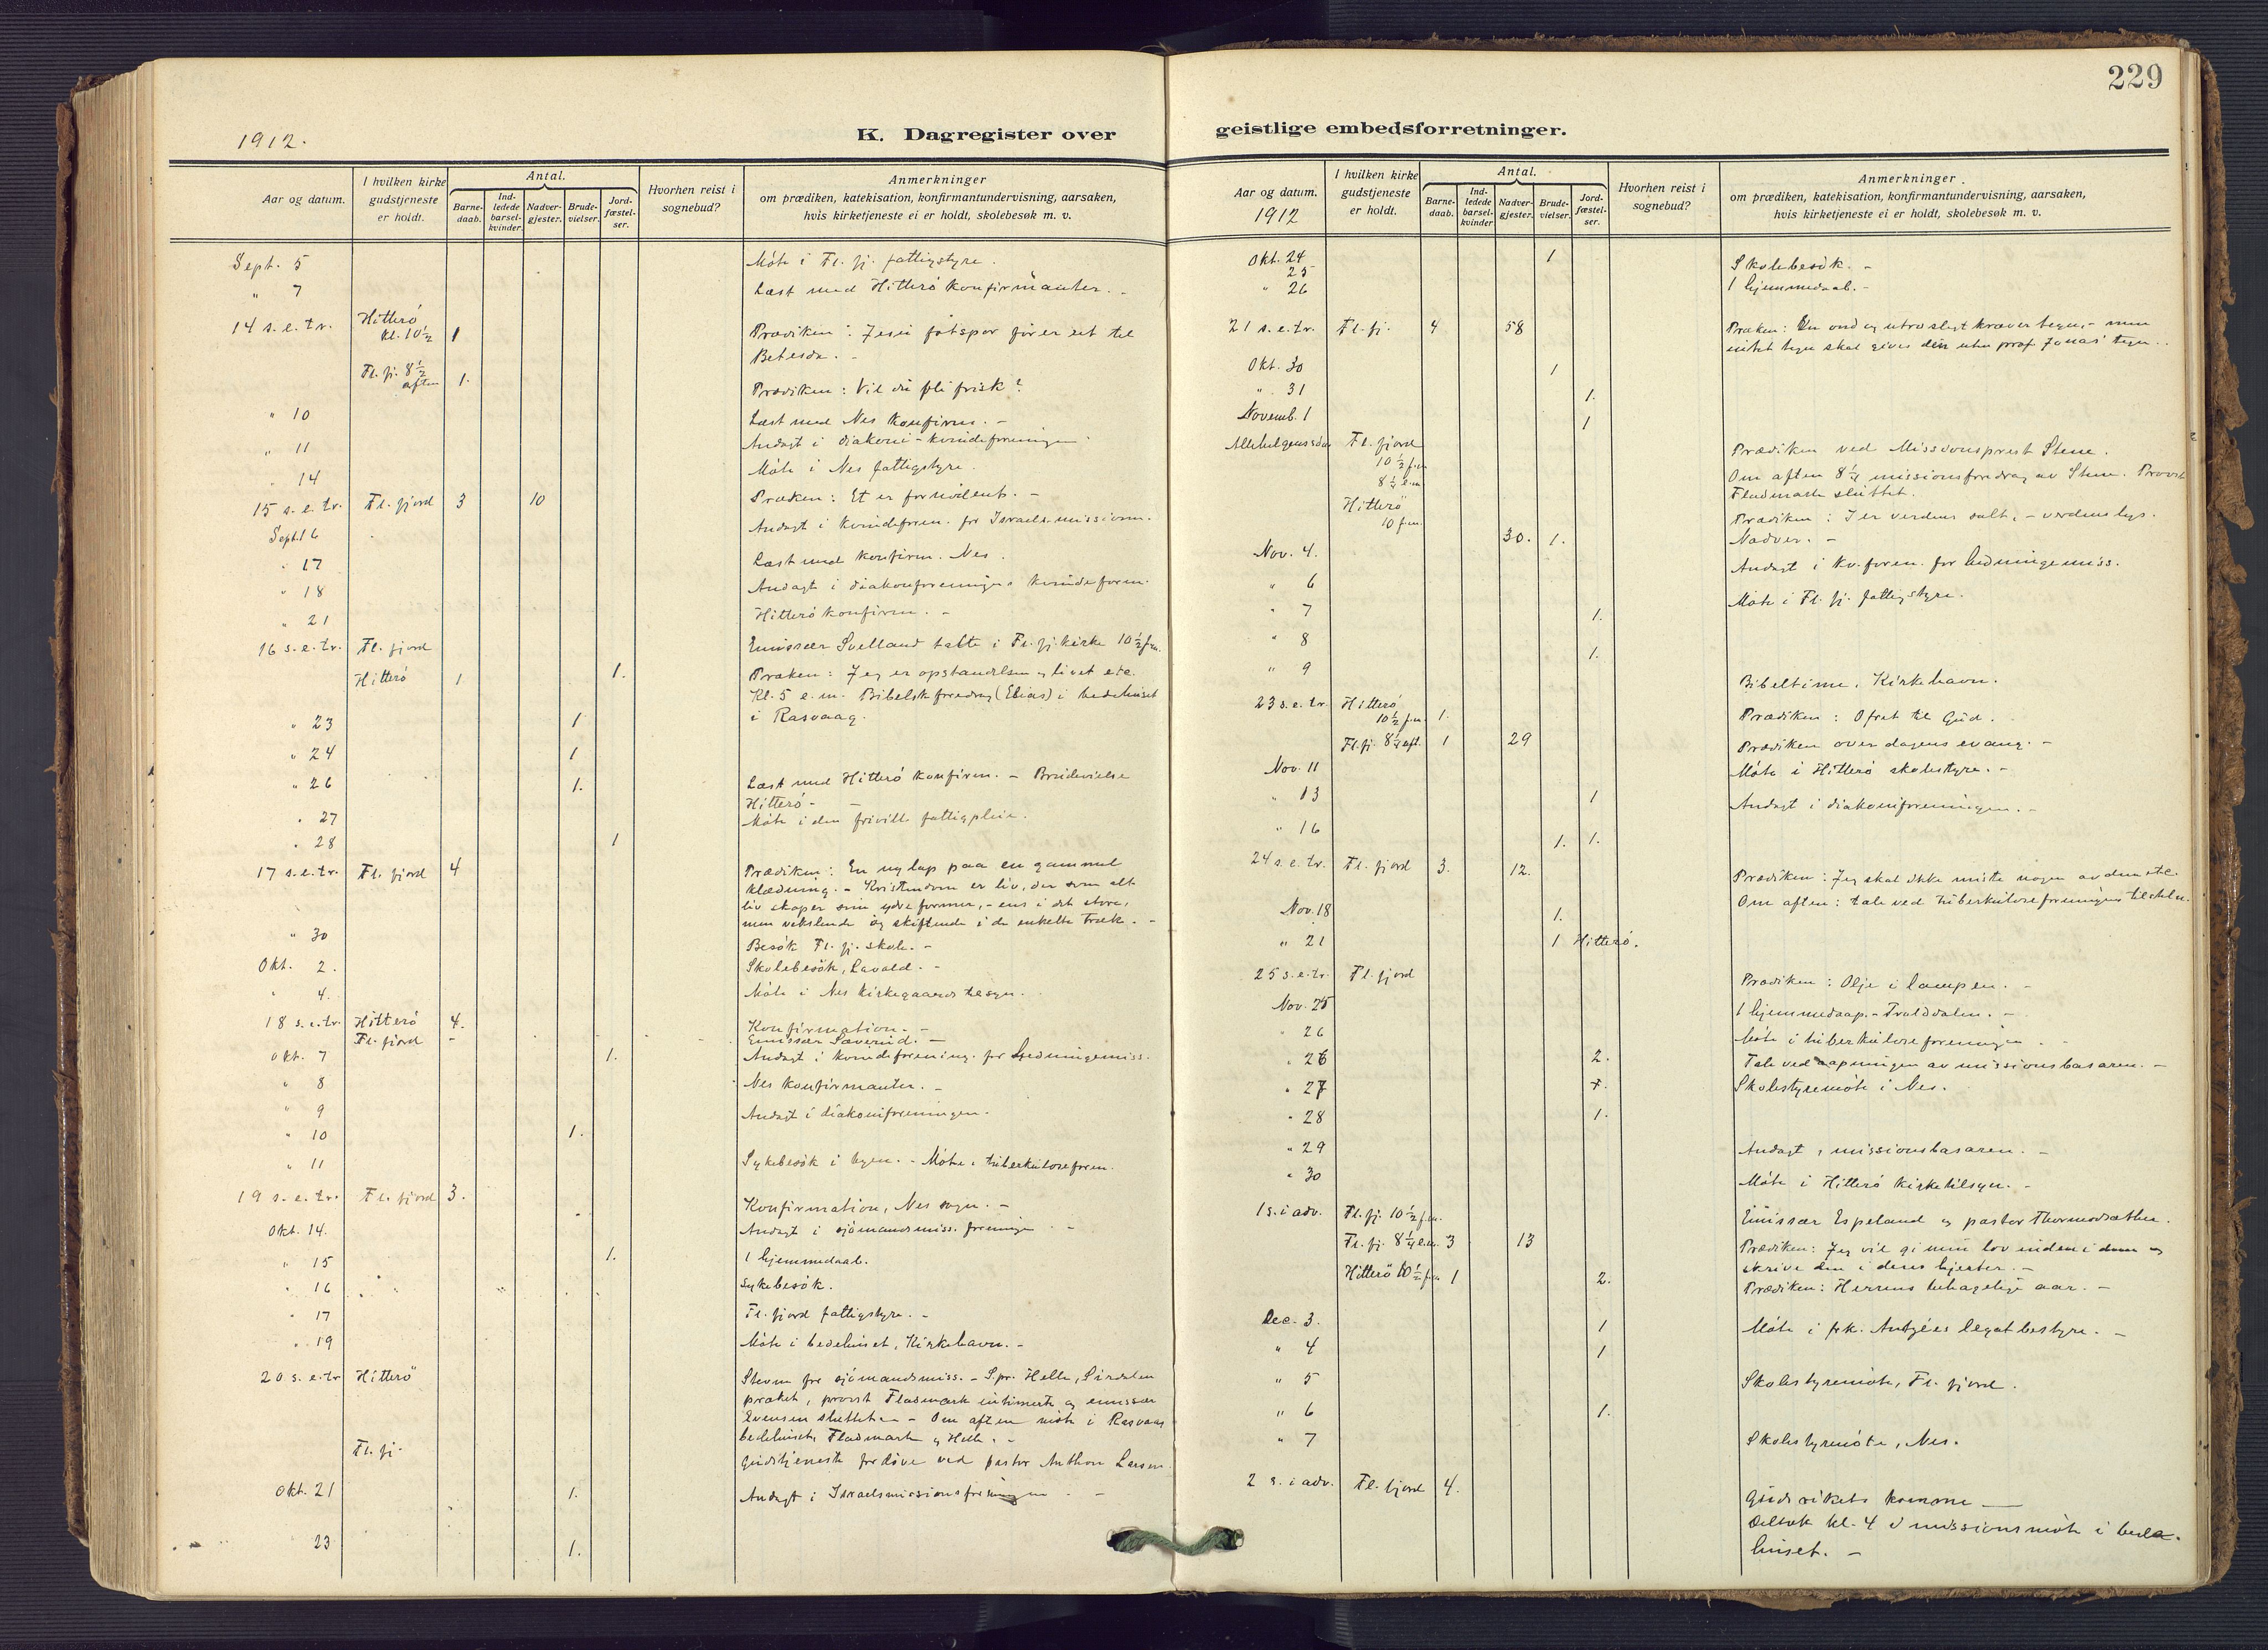 229
1912.
K. Dagregister over
geistlige embedsforretninger.
Aar og datum.
I hvilken kirke gudstjeneste er holdt.
Antal.
Barne-daab.
Ind-ledede barsel-kvinder.
Nadver-gjester.
Brude-vielser.
Jord-fæstel-ser.
Hvorhen reist i sognebud?
Anmerkninger
om prædiken, katekisation, konfirmantundervisning, aarsaken,
hvis kirketjeneste ei er holdt, skolebesøk m. v.
Sept. 5 Möte i Fl. fj. fattigstyre.
" 7 Læst med Hitterö konfirmanter. -
14 s. e. tr. Hitterö kl. 10 1/2 1 Prædiken: Jesu fotspor förer til
Betesda. -
Fl. fj. 8 1/2 aften 1. Prædiken: Vil du bli frisk?
" 10 Læst med Nes konfirm. -
" 11 Andagt i diakoni-kvindeforeningen.
" 14 Möte i Nes fattigstyre.
15 s. e. tr. Fl. fjord 3 10 Præken: Et er fornödent. -
Sept. 16 Andagt i kvindeforen. for Israelsmissionen.
" 17 Læst med konfirm. Nes.
" 18 Andagt i diakonforeningens kvindeforen.
" 21 Hitterö konfirm. -
16 s. e. tr. Fl. fjord Emissær Svelland talte i Fl. fj. kirke 10 1/2 fm.
Hitterö 1 1. Præken: Jeg er opstandelsen og livet etc.
Kl. 5 e. m. Bibelsk foredrag (Elias) i bedehuset
" 23 1 i Rasvaag.
" 24 1
" 26 1. Læst med Hitterö konfirm. - Brudevielse
Hitterö -
" 27 Möte i den frivill. fattigpleie.
" 28 1
17 s. e. tr. Fl. fjord 4 Prædiken: En ny lap paa en gammel
klædning. - Kristendom er liv, der som alt
liv skaper sine ydre former, - ens i det store,
men vekslende og skiftende i de enkelte træk. -
" 30 Besök Fl. fj. skole. -
Okt. 2. Skolebesök, Lavold. -
" 4. Möte i Nes kirkegaards tilsyn.
18 s. e. tr. Hitterö 4. Konfirmation. -
Fl. fjord - Emissær Saverud. -
Okt. 7 1. Andagt i kvindeforening for Hedningemiss.
" 8 Nes konfirmanter. -
" 9 Andagt i diakoniforeningen.
" 10 1.
" 11 Sykebesök i byen. - Möte i tuberkuloseforen.
19 s. e. tr. Fl. fjord 3. Konfirmation, Nes sogn. -
Okt. 14. Andagt i sjömandsmiss. forening -
" 15 1. 1 hjemmedaab.
" 16 Sykebesök.
" 17 Fl. fjord fattigstyre. -
" 19 Möte i bedehuset, Kirkehavn. -
20 s. e. tr Hitterö Stevne for sjömandsmiss. - S.pr. Helle, Sirdalen
præket, provst Fladmark intimerte og emissær
Evensen sluttet. - Om aften möte i Rasvaag
bedehuset, Fladmark og Helle. -
Fl. fj. Gudstjeneste for döve ved pastor Anthon Larsen
Okt. 21 1. Andagt i Israelsmissionsforeningen -
" 23 1.
Aar og datum.
1912
I hvilken kirke gudstjeneste er holdt.
Antal.
Barne-daab.
Ind-ledede barsel-kvinder
Nadver-gjester.
Brude-vielser.
Jord-fæstel-ser.
Hvorhen reist i sognebud?
Anmerkninger
om prædiken, katekisation, konfirmantundervisning, aarsaken,
hvis kirketjeneste ei er holdt, skolebesøk m. v.
Okt. 24 1 Skolebesök. -
25 1 hjemmedaab. -
" 26
21 s. e. tr. Fl. fj. 4 58 Præken: En ond og utro slegt kræver tegn, - men
intet tegn skal gives den uten prof. Jonas' tegn.
Okt. 30 1
" 31 1.
Novemb. 1 1
Allehelgensdag Fl. fjord 10 1/2 f.m Prædiken ved Missionsprest Stene.
8 1/4 e.m Om aften 8 1/4 missionsforedrag av Stene. Provst
Fladmark sluttet.
Hitterö 10 f.m. Prædiken: I er verdens salt, - verdens lys.
30. 1. Nadver. -
Nov. 4. Andagt i kv. foren. for hedningemiss.
" 6 Möte i Fl. fj. fattigstyre.
" 7 1.
" 8 1.
" 9 Bibeltime, Kirkehavn.
23 s. e. tr. Hitterö 10 1/2 f.m. 1. Prædiken: Ofret til Gud.
Fl. fj. 8 1/4 aft. 1 29 Prædiken over dagens evang. -
Nov. 11 Möte i Hitterö skolestyre. -
" 13 1 Andagt i diakoniforeningen. -
" 16 1. 1.
24 s. e. tr. Fl. fjord 3. 12. Prædiken: Jeg skal ikke miste nogen av dem etc.
Om aften: tale ved tuberkuloseforeningens
Nov. 18 1.
" 21 1 Hitterö.
25 s. e. tr. Fl. fjord Prædiken: Olje i lampen. -
Nov. 25 1 hjemmedaap. - Trolddalen. -
" 26 Möte i tuberkuloseforeningen -
" 26 2. Tale ved aapningen av missionsbasaren. -
" 27 Skolestyremöte i Nes.
" 28 1.
" 29 Andagt i missionsbasaren. -
" 30 Möte i Hitterö kirketilsyn. -
1 s. i adv. Fl. fj. 10 1/2 f.m. Emissær Espeland og pastor Thormodsæther.
Fl. fj. 8 1/4 e.m. 3 13 Prædiken: Jeg vil gi min lov inden i dem og
skrive den i deres hjerter. -
Hitterö 10 1/2 f.m 1 2. Prædiken: Herrens behagelige aar. -
Dec. 3. 1 Möte i frk. legatbestyre. -
" 4 1
" 5 Skolestyremöte, Fl. fjord.
" 6 1.
" 7 Skolestyremöte, Nes.
2 s. i adv. Fl. fjord 4. Guds rikets komme —
Deltok kl. 4 i missionsmöte i bede-
huset. -